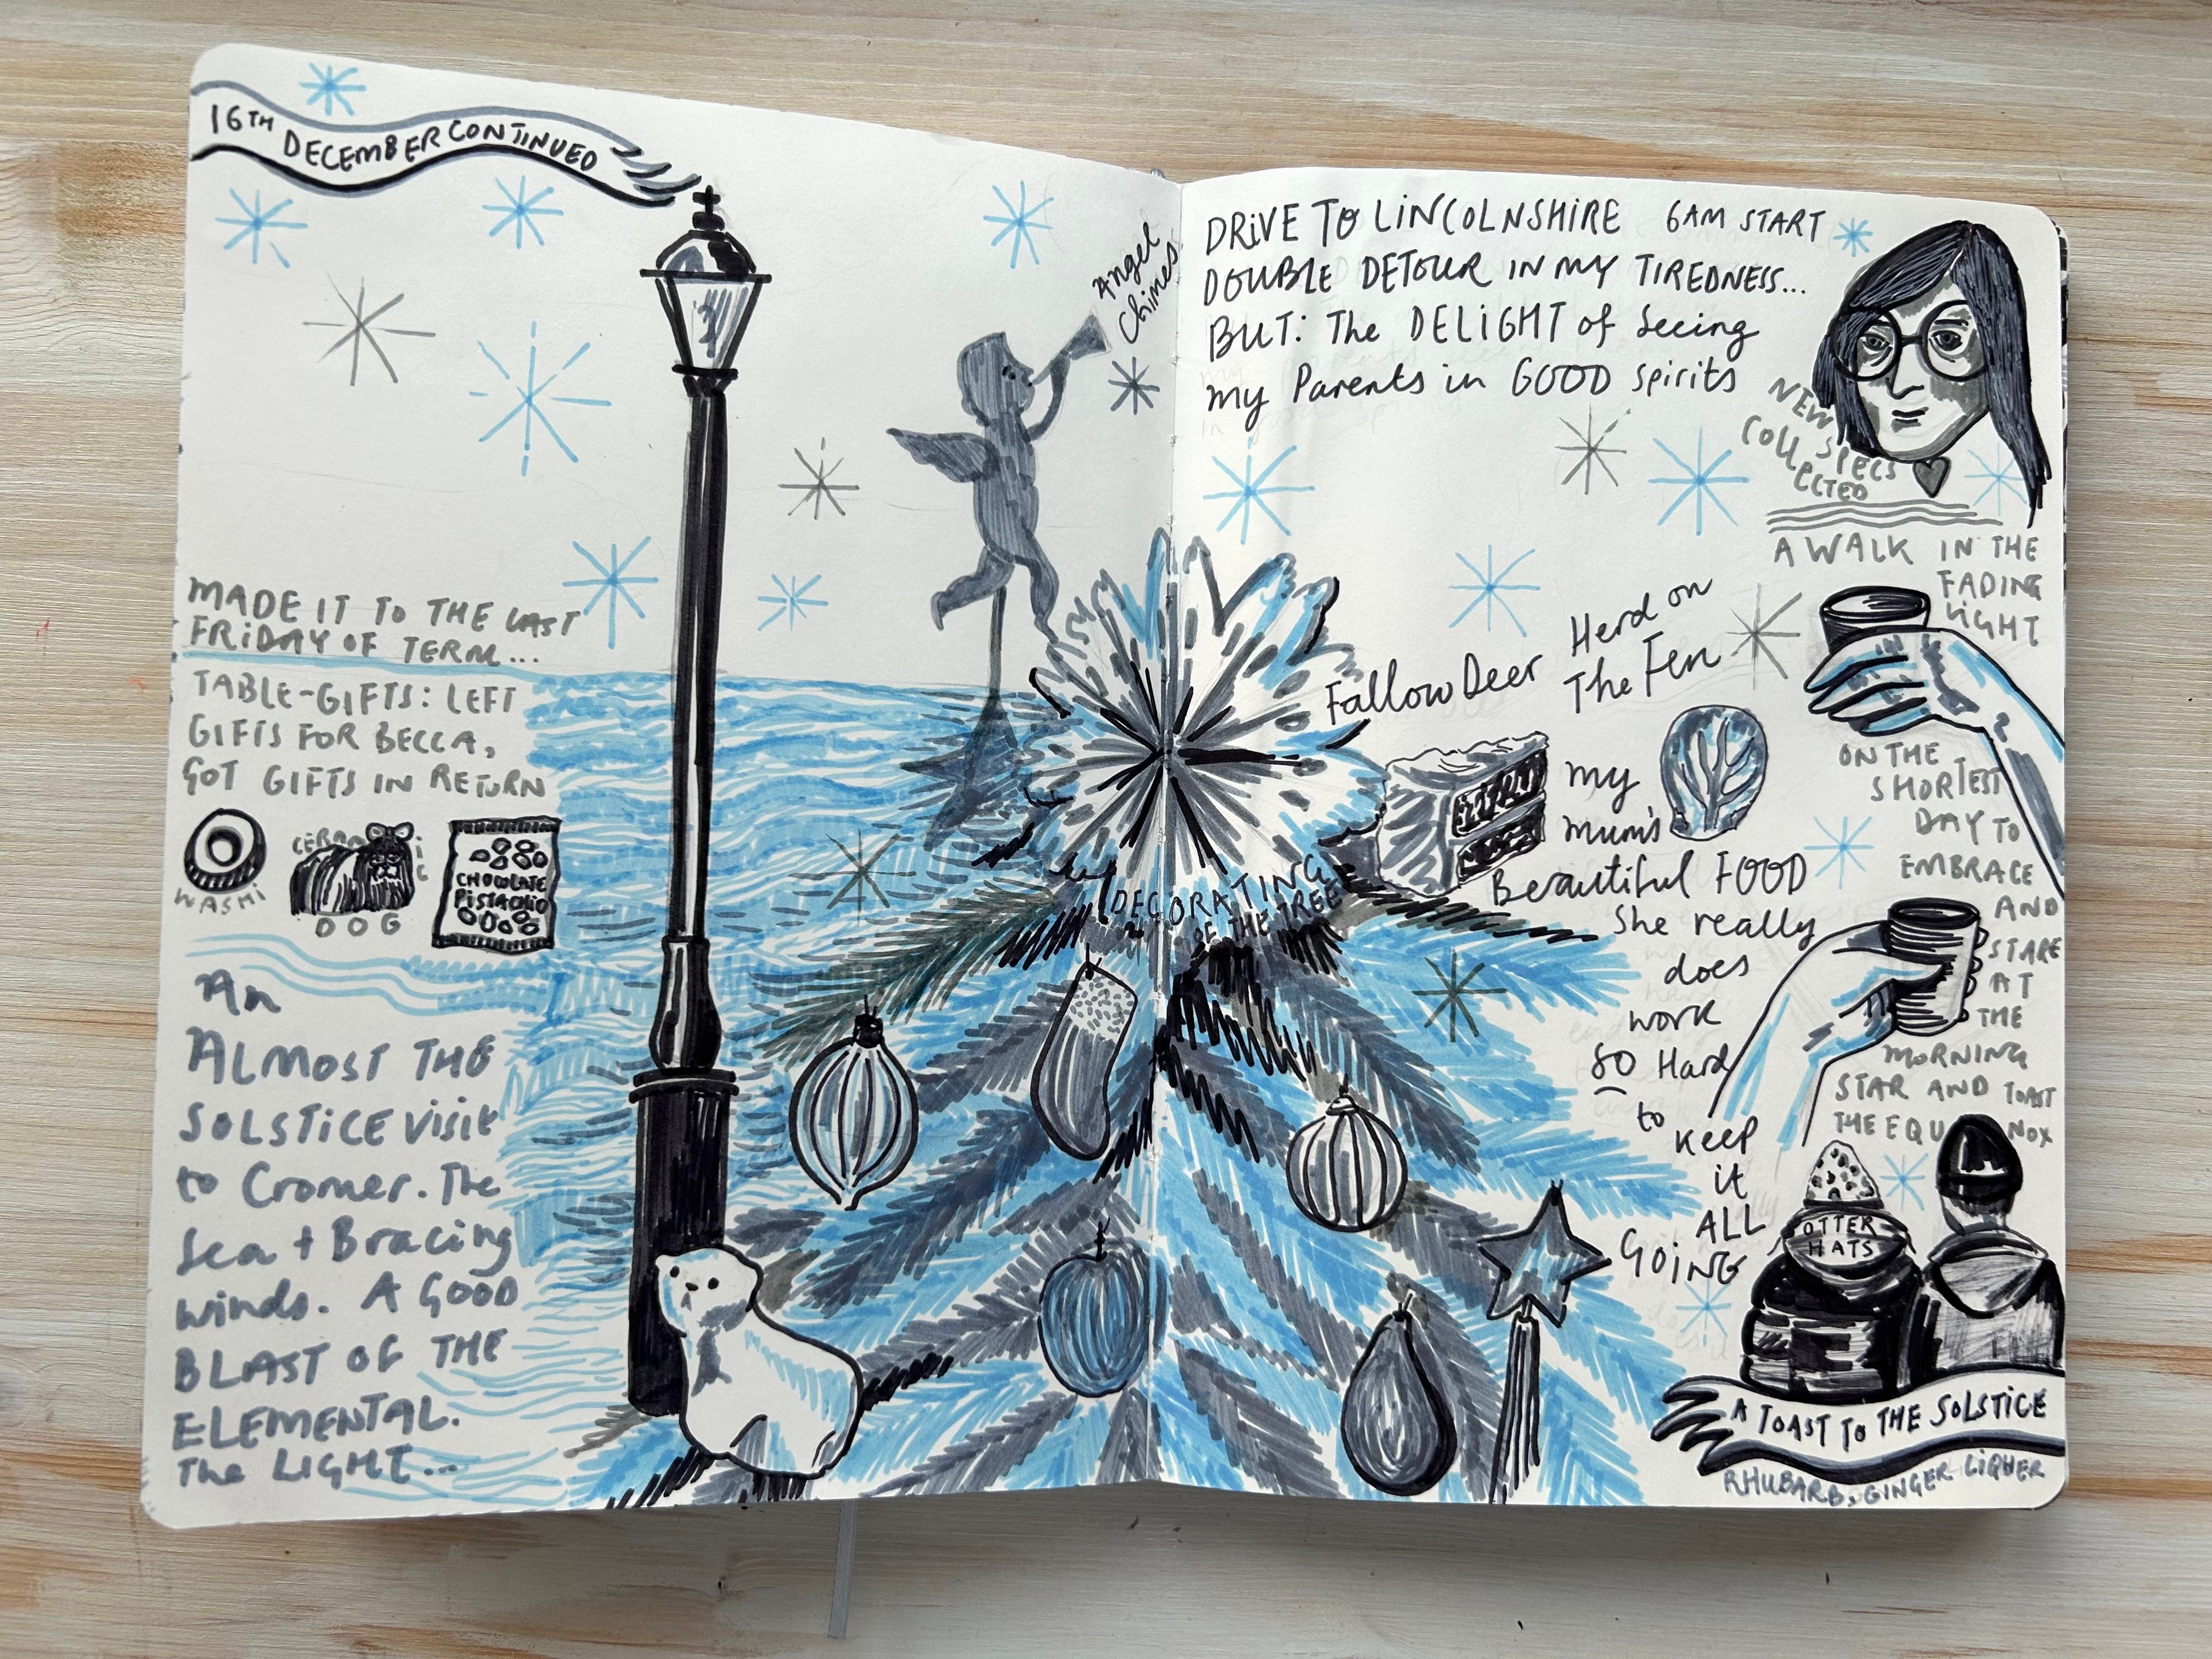 16TH DECEMBER CONTINUED
MADE IT TO THE LAST
FRIDAY OF TERM...
TABLE-GIFTS: LEFT
GIFTS FOR BECCA,
GOT GIFTS IN RETURN
WASHI
CERAMIC
DOG
CHOCOLATE
PISTACHIO
An
ALMOST THE
SOLSTICE visit
to Cromer. The
Sea + Bracing
winds. A GOOD
BLAST OF THE
ELEMENTAL.
The LIGHT...
Angel
Chimes
DECORATING
OF THE TREE
DRIVE TO LINCOLNSHIRE 6AM START
DOUBLE DETOUR IN MY TIREDNESS...
BUT: The DELIGHT of seeing
my Parents in GOOD spirits
NEW
SPECS
COLLECTED
Fallow Deer
Herd on
The Fen
my
mum's
Beautiful FOOD
She really
does
work
SO Hard
to
Keep
it
ALL
GOING
A WALK IN THE
FADING
LIGHT
ON THE
SHORTEST
DAY TO
EMBRACE
AND
STARE
AT
THE
MORNING
STAR AND TOAST
THE EQUINOX
OTTER
HATS
A TOAST TO THE SOLSTICE
RHUBARB, GINGER LIQUER